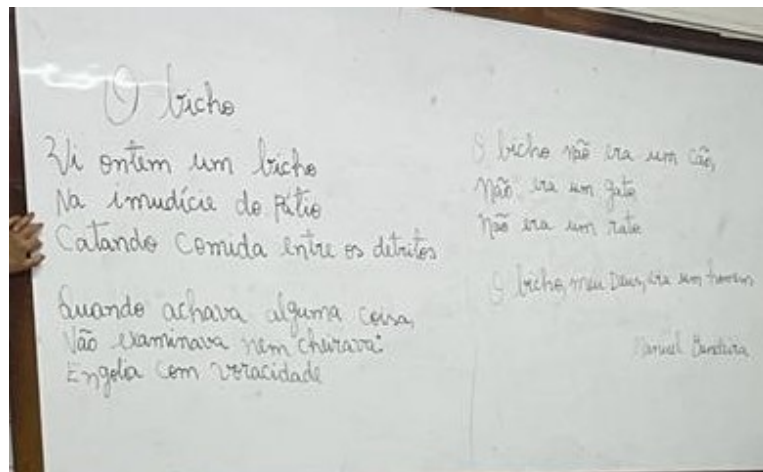 O bicho
Vi ontem um bicho
Na imudície do pátio
Catando comida entre os detritos
Quando achava alguma coisa,
Não examinava nem cheirava:
Engolia com voracidade
O bicho não era um cão,
Não era um gato
Não era um rato
O bicho, meu Deus, era um homem
Manuel Bandeira